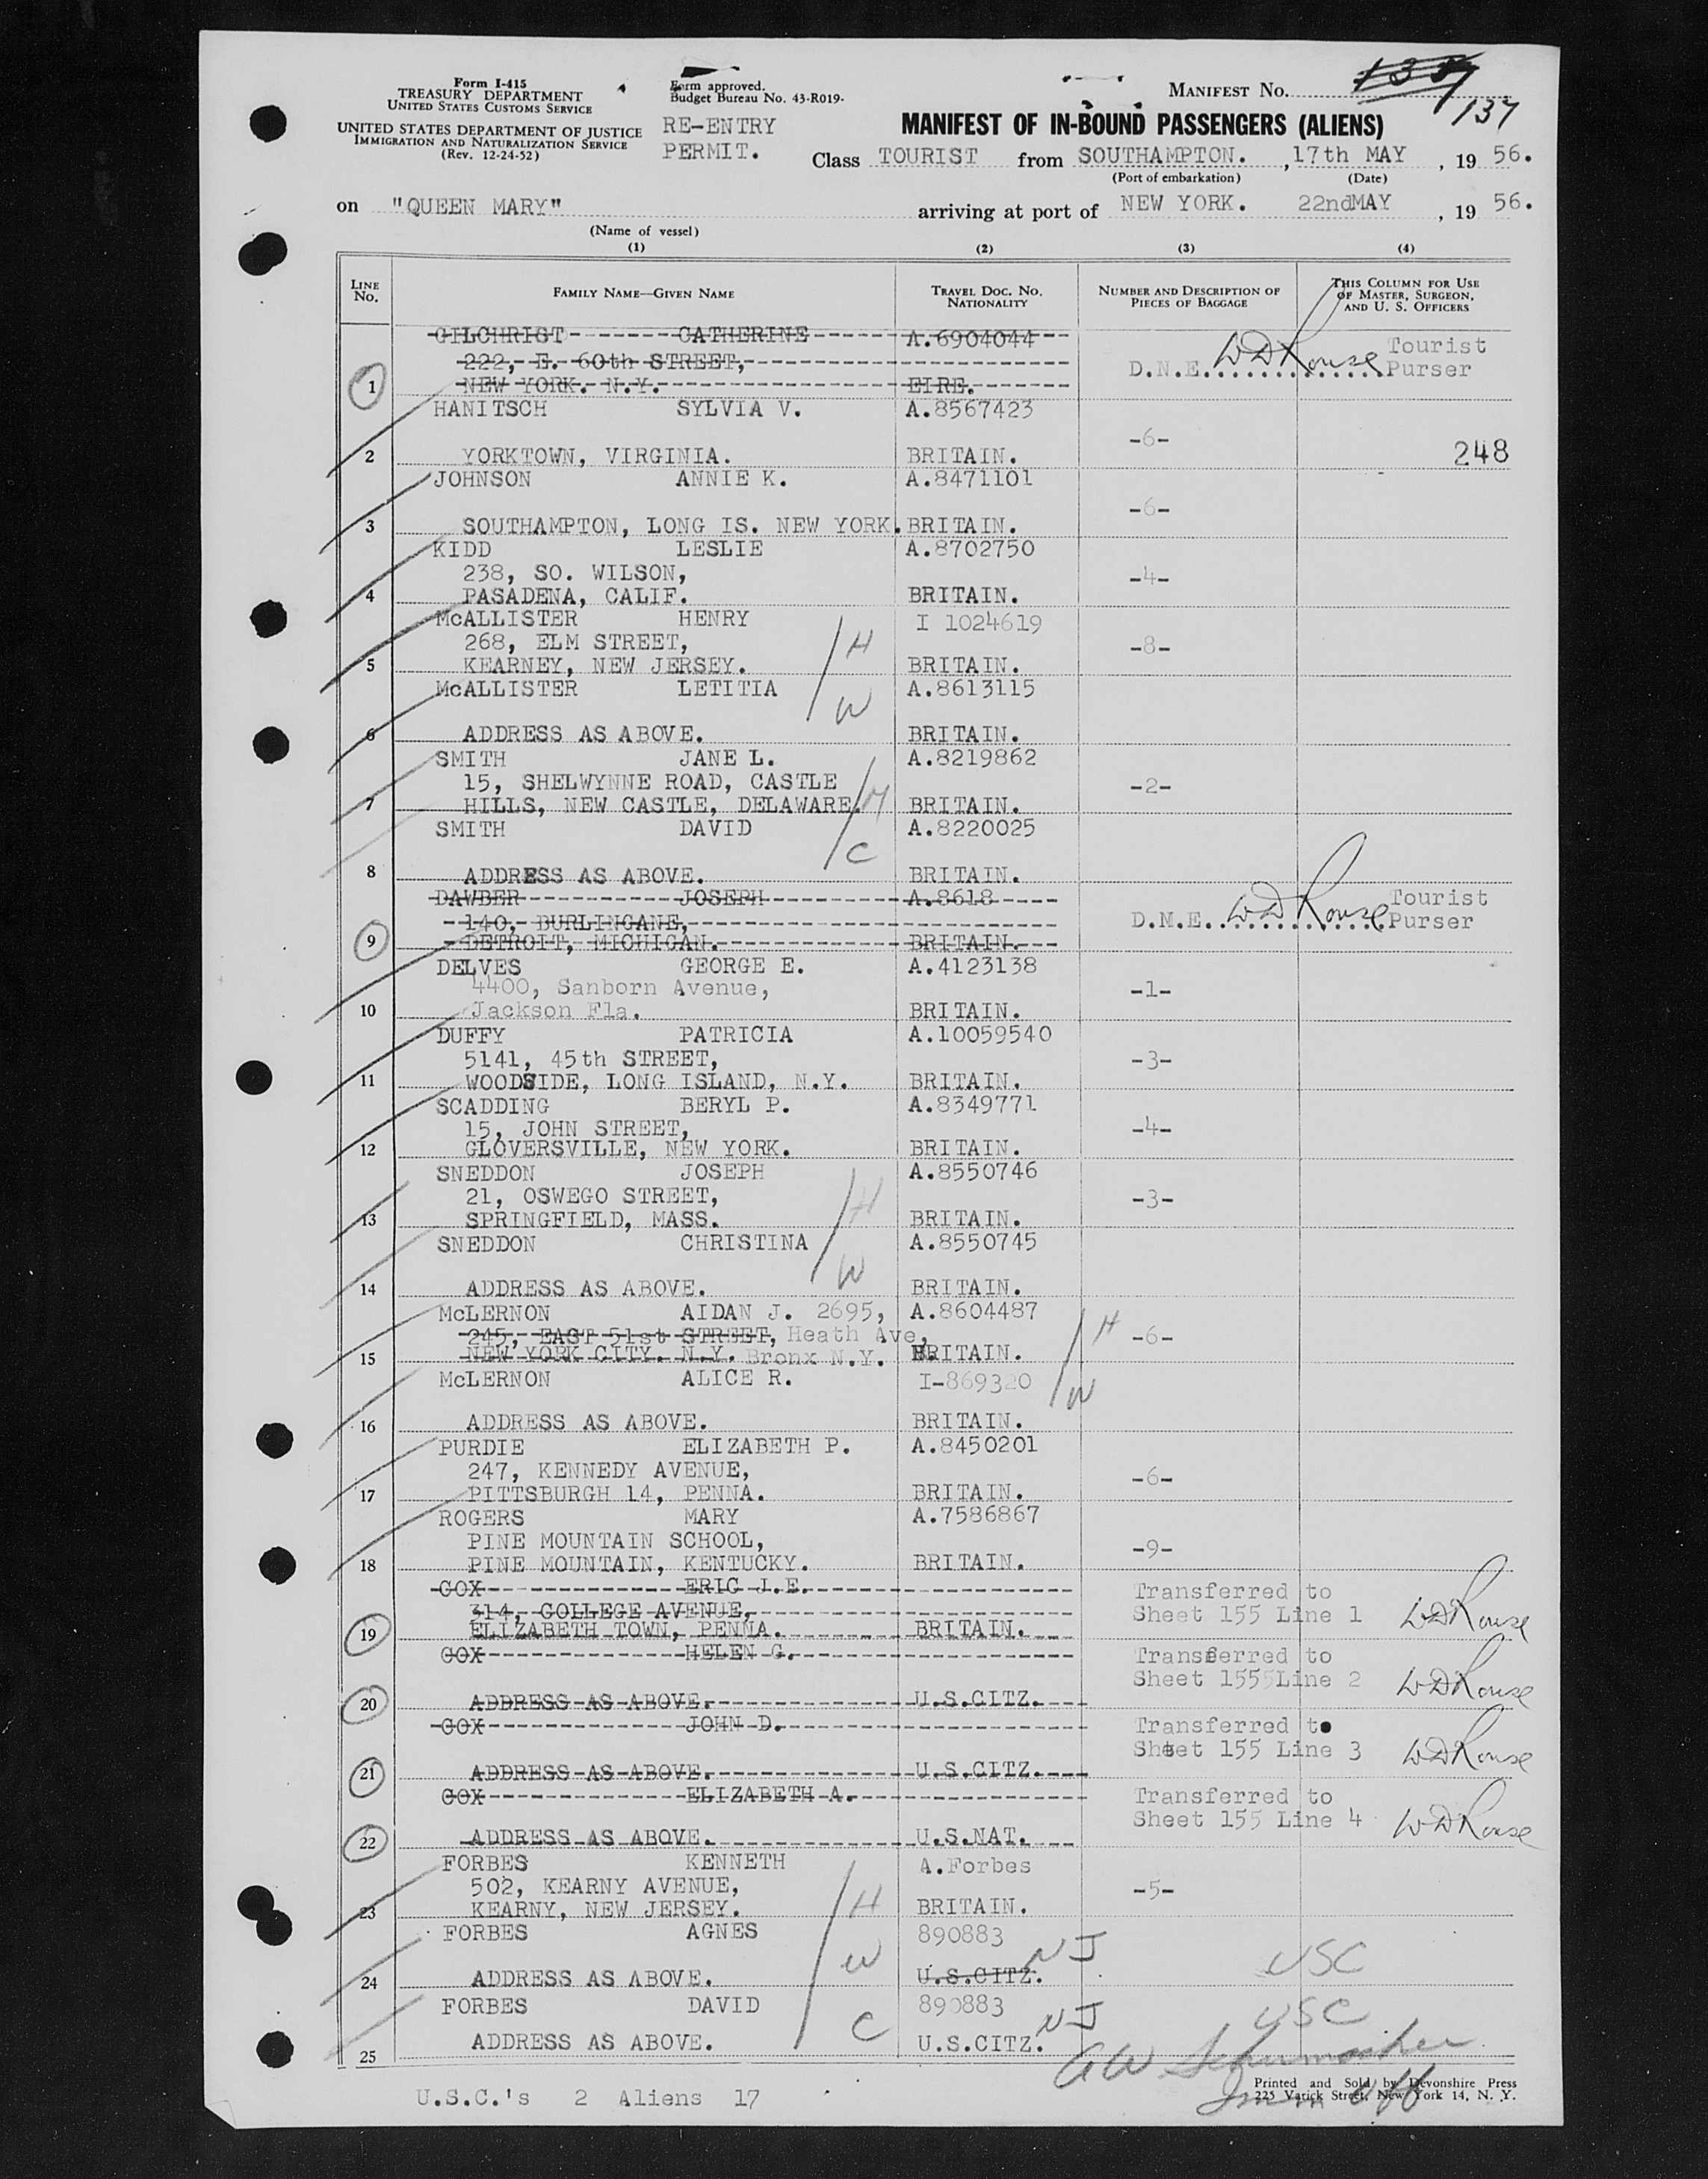 Form I-415
TREASURY DEPARTMENT
UNITED STATES CUSTOMS SERVICE
UNITED STATES DEPARTMENT OF JUSTICE
IMMIGRATION AND NATURALIZATION SERVICE
(Rev. 12-24-52)
Form approved.
Budget Bureau No. 43-R019.
RE-ENTRY
PERMIT.
MANIFEST No.
137
MANIFEST OF IN-BOUND PASSENGERS (ALIENS)
Class TOURIST from SOUTHAMPTON. , 17th MAY , 19 56.
(Port of embarkation) (Date)
on "QUEEN MARY" arriving at port of NEW YORK. 22ndMAY , 19 56.
(Name of vessel)
(1) (2) (3) (4)
LINE No. FAMILY NAME—GIVEN NAME TRAVEL DOC. No. NATIONALITY NUMBER AND DESCRIPTION OF PIECES OF BAGGAGE THIS COLUMN FOR USE OF MASTER, SURGEON, AND U. S. OFFICERS
GILCHRIST CATHERINE A.6904044
222, E. 60th STREET, D.N.E. W D Rouse Tourist Purser
1 NEW YORK. N.Y. EIRE.
HANITSCH SYLVIA V. A.8567423
-6-
2 YORKTOWN, VIRGINIA. BRITAIN. 248
JOHNSON ANNIE K. A.8471101
-6-
3 SOUTHAMPTON, LONG IS. NEW YORK. BRITAIN.
KIDD LESLIE A.8702750
238, SO. WILSON, -4-
4 PASADENA, CALIF. BRITAIN.
McALLISTER HENRY I 1024619
268, ELM STREET, H -8-
5 KEARNEY, NEW JERSEY. BRITAIN.
McALLISTER LETITIA A.8613115
W
6 ADDRESS AS ABOVE. BRITAIN.
SMITH JANE L. A.8219862
15, SHELWYNNE ROAD, CASTLE -2-
7 HILLS, NEW CASTLE, DELAWARE. M BRITAIN.
SMITH DAVID A.8220025
C
8 ADDRESS AS ABOVE. BRITAIN.
DAWBER JOSEPH A.8618
140, BURLINGANE, D.M.E. W D Rouse Tourist Purser
9 DETROIT, MICHIGAN. BRITAIN.
DELVES GEORGE E. A.4123138
4400, Sanborn Avenue, -1-
10 Jackson Fla. BRITAIN.
DUFFY PATRICIA A.10059540
5141, 45th STREET, -3-
11 WOODSIDE, LONG ISLAND, N.Y. BRITAIN.
SCADDING BERYL P. A.8349771
15, JOHN STREET, -4-
12 GLOVERSVILLE, NEW YORK. BRITAIN.
SNEDDON JOSEPH A.8550746
21, OSWEGO STREET, H -3-
13 SPRINGFIELD, MASS. BRITAIN.
SNEDDON CHRISTINA A.8550745
W
14 ADDRESS AS ABOVE. BRITAIN.
McLERNON AIDAN J. 2695, A.8604487
245, EAST 51st STREET, Heath Ave, H -6-
15 NEW YORK CITY. N.Y. Bronx N.Y. BRITAIN.
McLERNON ALICE R. I-869320 W
16 ADDRESS AS ABOVE. BRITAIN.
PURDIE ELIZABETH P. A.8450201
247, KENNEDY AVENUE, -6-
17 PITTSBURGH 14, PENNA. BRITAIN.
ROGERS MARY A.7586867
PINE MOUNTAIN SCHOOL, -9-
18 PINE MOUNTAIN, KENTUCKY. BRITAIN.
COX ERIC J.E. Transferred to
314, COLLEGE AVENUE, Sheet 155 Line 1 W D Rouse
19 ELIZABETH TOWN, PENNA. BRITAIN.
COX HELEN G. Transferred to
Sheet 1555Line 2 W D Rouse
20 ADDRESS AS ABOVE. U.S.CITZ.
COX JOHN D. Transferred to
Sheet 155 Line 3 W D Rouse
21 ADDRESS AS ABOVE. U.S.CITZ.
COX ELIZABETH A. Transferred to
Sheet 155 Line 4 W D Rouse
22 ADDRESS AS ABOVE. U.S.NAT.
FORBES KENNETH A.Forbes
502, KEARNY AVENUE, H -5-
23 KEARNY, NEW JERSEY. BRITAIN.
FORBES AGNES 890883
W NJ USC
24 ADDRESS AS ABOVE. U.S.CITZ.
FORBES DAVID 890883
C NJ USC
25 ADDRESS AS ABOVE. U.S.CITZ.
A W Schumacher
Imm Off
Printed and Sold by Devonshire Press
225 Varick Street, New York 14, N. Y.
U.S.C.'s 2 Aliens 17